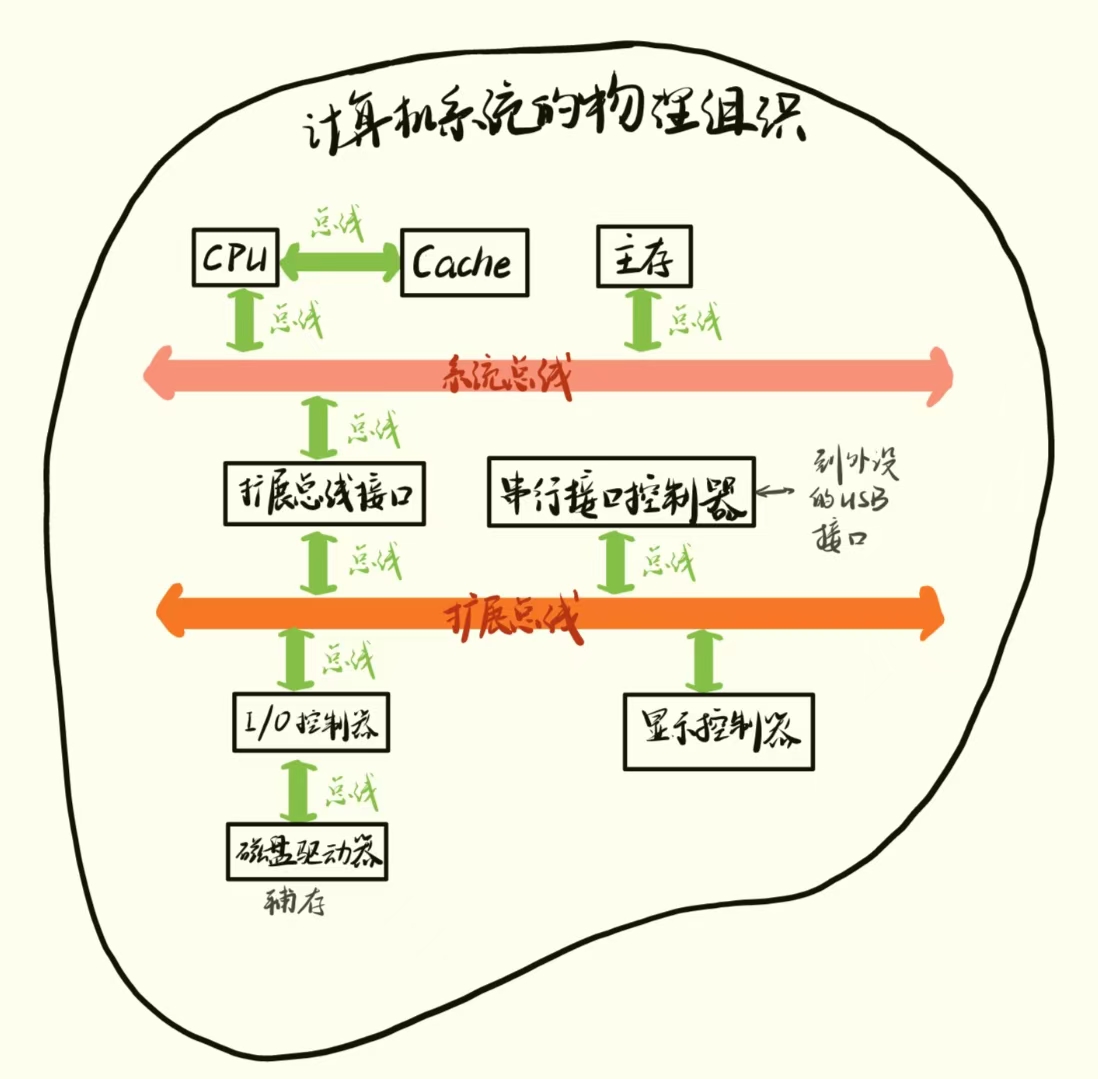 计算机系统的物理组织
总线
CPU
Cache
主存
总线
总线
系统总线
总线
扩展总线接口
串行接口控制器
到外设
的USB
接口
总线
总线
扩展总线
总线
I/O控制器
显示控制器
总线
磁盘驱动器
辅存